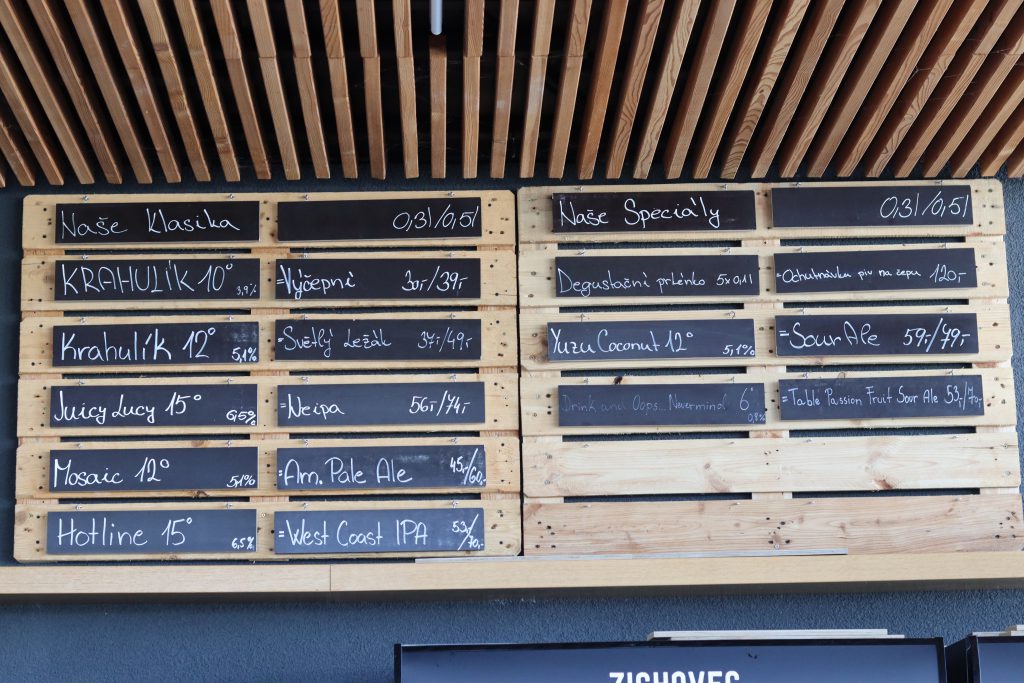 Naše Klasika 0,3l/0,5l
KRAHULÍK 10° 3,9% =Výčepní 30,-/39,-
Krahulík 12° 5,1% =Světlý Ležák 37,-/49,-
Juicy Lucy 15° 6,5% =Neipa 56,-/74,-
Mosaic 12° 5,1% =Am. Pale Ale 45,-/60,-
Hotline 15° 6,5% =West Coast IPA 53,-/70,-
Naše Speciály 0,3l/0,5l
Degustační prkénko 5x0,1l =Ochutnávka piv na čepu 120,-
Yuzu Coconut 12° 5,1% =Sour Ale 59,-/79,-
Drink and Oops... Nevermind 6° 0,8% =Table Passion Fruit Sour Ale 53,-/70,-
ZICHOVEC